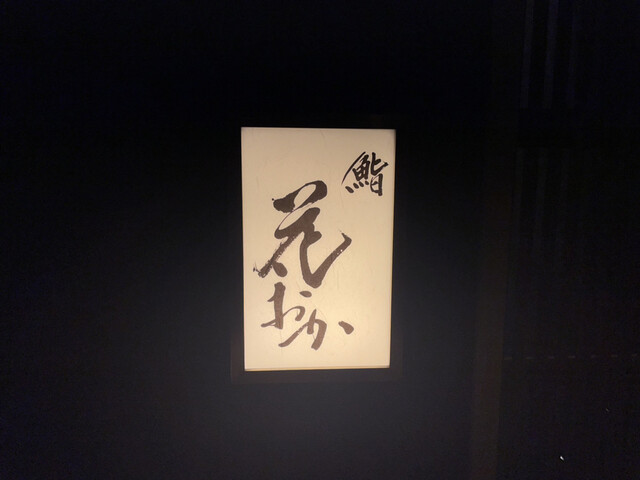 鮨
花おか